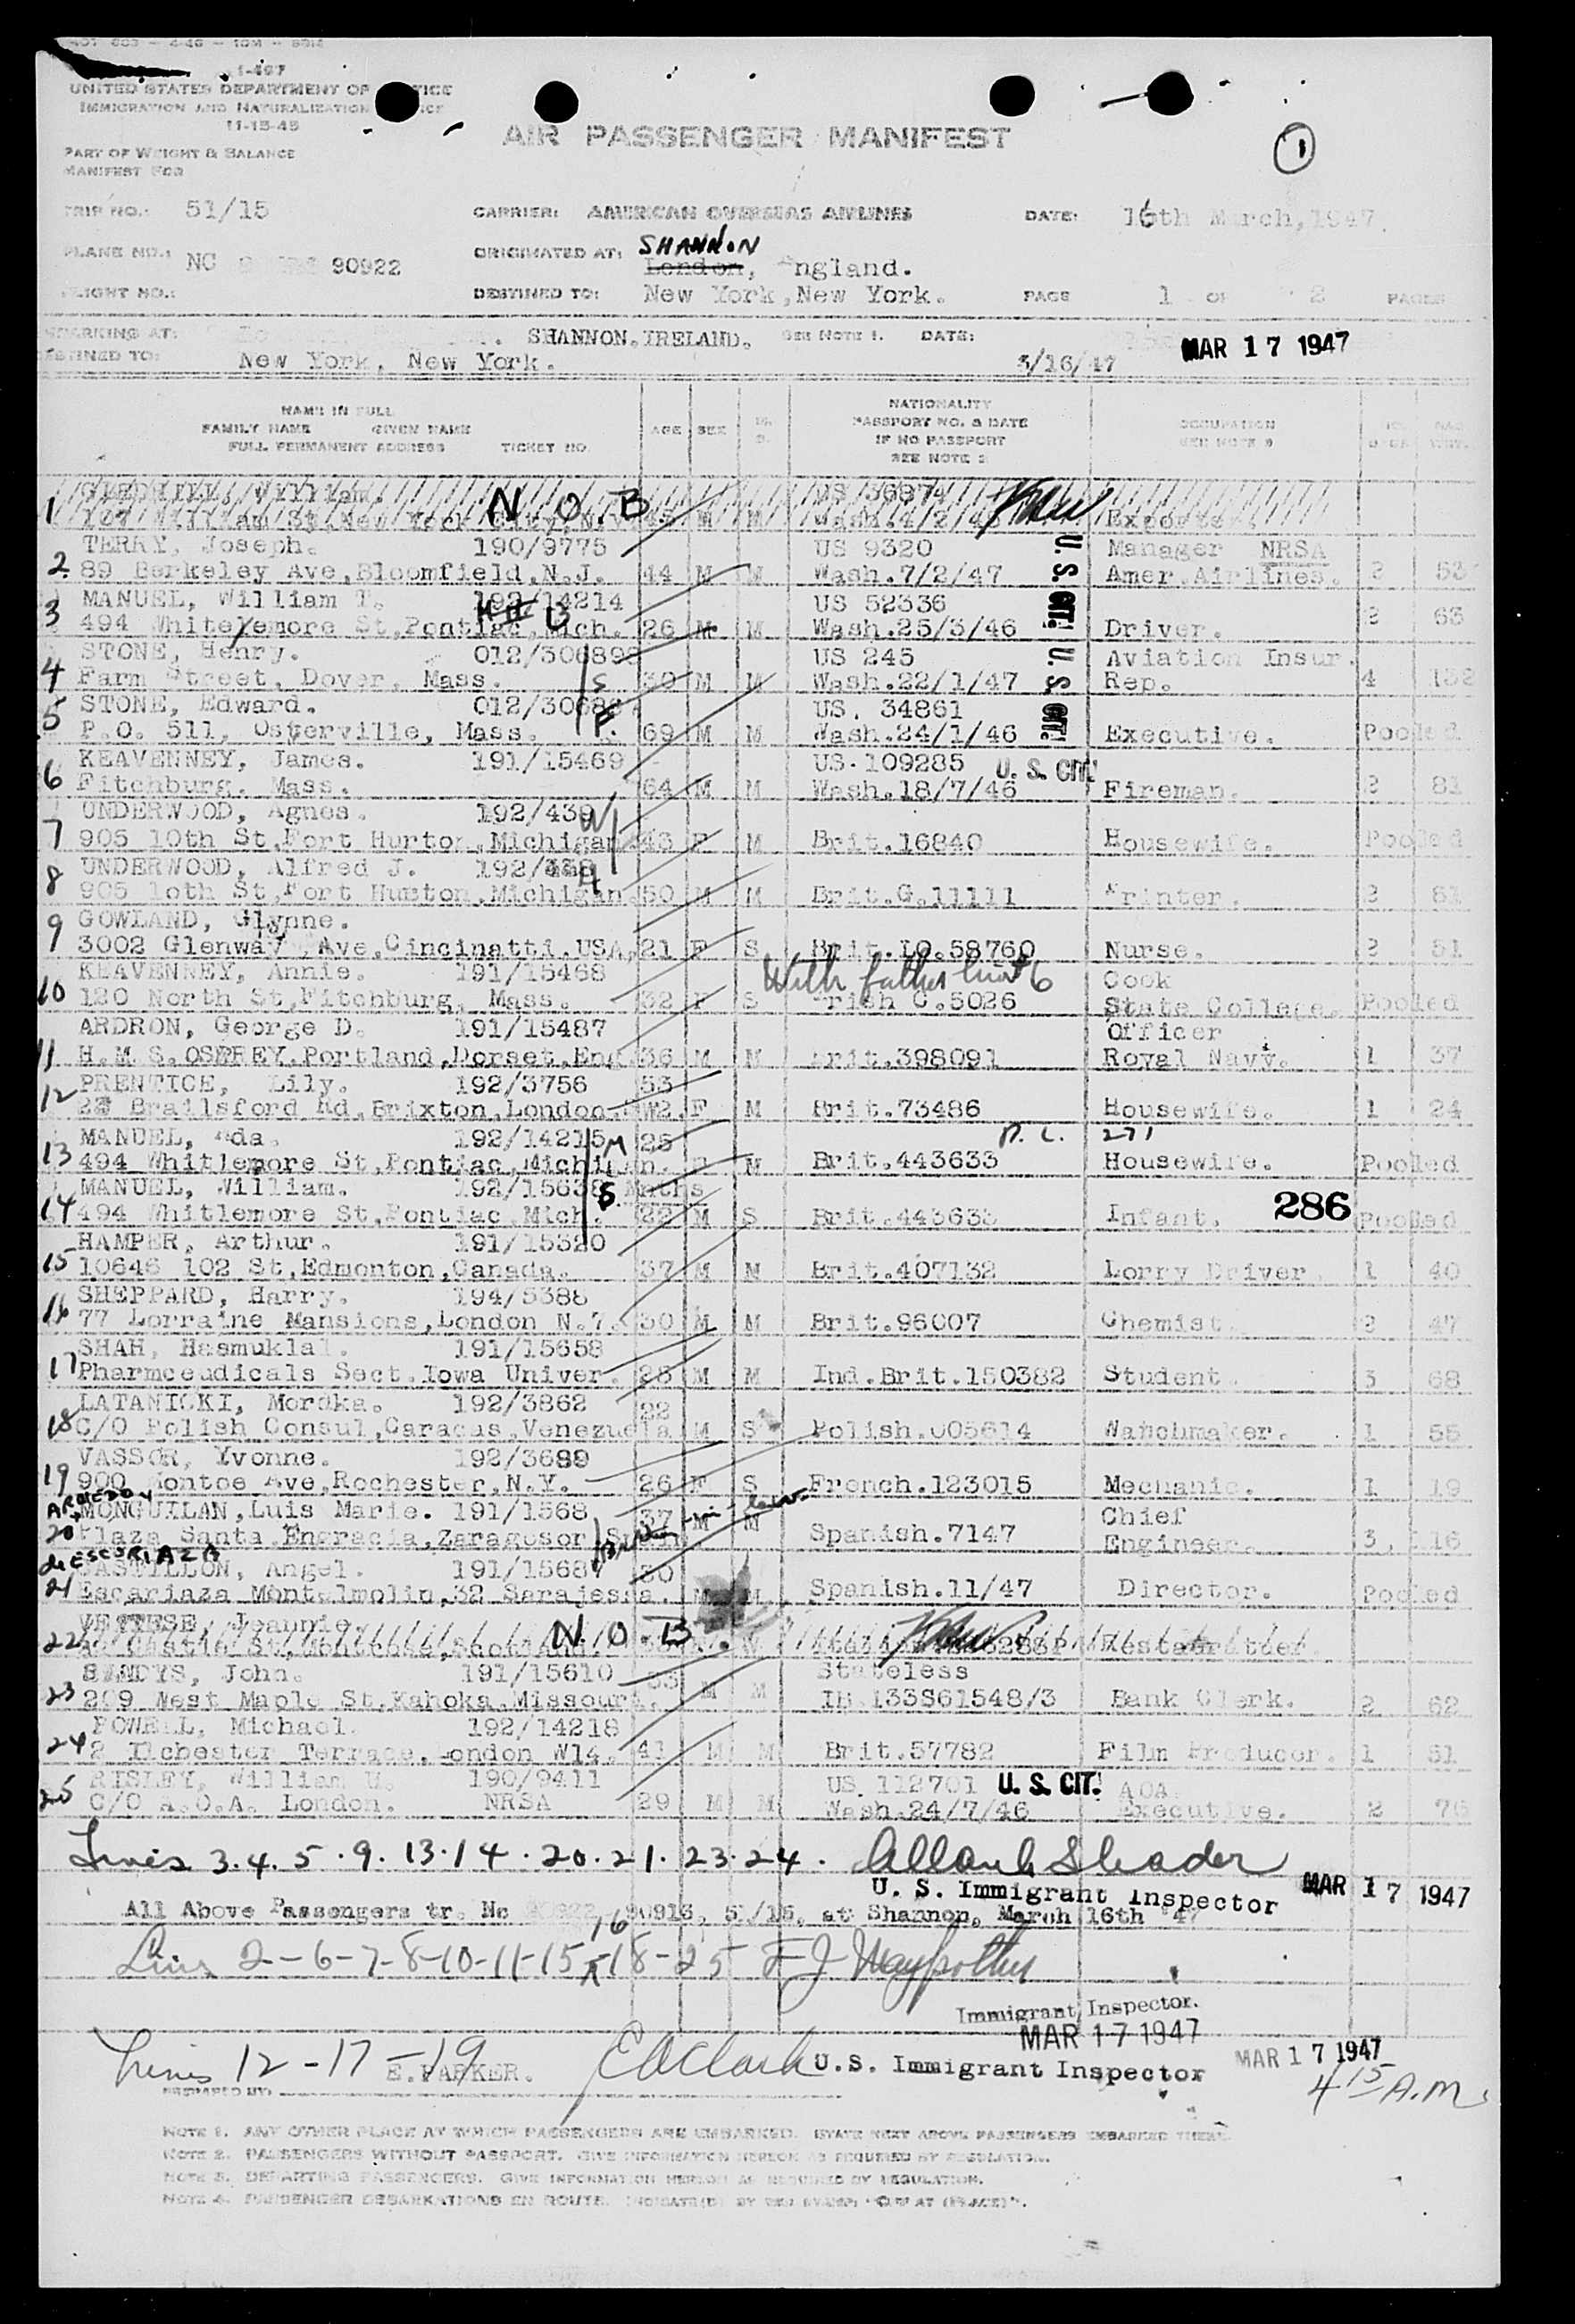 I-467
UNITED STATES DEPARTMENT OF
IMMIGRATION AND NATURALIZATION
11-15-45
AIR PASSENGER MANIFEST
1
PART OF WEIGHT & BALANCE
MANIFEST FOR
TRIP NO.: 51/15 CARRIER: AMERICAN OVERSEAS AIRLINES DATE: 16th March, 1947.
PLANE NO.: NC 90922 ORIGINATED AT: SHANNON London, England.
FLIGHT NO.: DESTINED TO: New York, New York. PAGE 1 OF 2 PAGES
EMBARKING AT: SHANNON, IRELAND. SEE NOTE 1. DATE: MAR 17 1947
DESTINED TO: New York, New York. 3/16/47
NAME IN FULL
FAMILY NAME GIVEN NAME
FULL PERMANENT ADDRESS TICKET NO. AGE SEX
NATIONALITY
PASSPORT NO. & DATE
IF NO PASSPORT
SEE NOTE 2
OCCUPATION
SEE NOTE 3
William. N.O.B
1 William St, New York City M M Wash. Exporter.
TERRY, Joseph. 190/9775 US 9320 Manager NRSA
2. 89 Berkeley Ave, Bloomfield, N.J. 44 M M Wash.7/2/47 U.S. CIT. Amer. Airlines. 2 53
MANUEL, William T. 192/14214 US 52336
3 494 Whitelemore St, Pontiac, Mich. 26 M M Wash.25/3/46 Driver. 2 63
STONE, Henry. 012/30689 US 245 Aviation Insur.
4 Farm Street, Dover, Mass. 30 M M Wash.22/1/47 U.S. CIT. Rep. 4 132
STONE, Edward. 012/3068 US. 34861
5 P.O. 511, Osterville, Mass. 69 M M Wash.24/1/46 Executive. Pooled
KEAVENNEY, James. 191/15469 US.109285 U.S. CIT.
6 Fitchburg. Mass. 64 M M Wash.18/7/46 Fireman. 2 81
UNDERWOOD, Agnes. 192/439
7 905 10th St, Fort Hurton, Michigan 43 F M Brit.16840 Housewife. Pooled
UNDERWOOD, Alfred J. 192/438
8 905 10th St, Fort Hurton, Michigan. 50 M M Brit.G.11111 Printer. 2 61
GOWLAND, Glynne.
9 3002 Glenway Ave, Cincinatti. USA, 21 F S Brit.LO.58760 Nurse. 2 51
KEAVENNEY, Annie. 191/15468 With father line 6 Cook
10 120 North St, Fitchburg, Mass. 32 F S Irish C.5026 State College. Pooled
ARDRON, George D. 191/15487 Officer
11 H.M.S. OSPREY. Portland, Dorset, Eng. 36 M M Brit.398091 Royal Navy. 1 37
PRENTICE, Lily. 192/3756 53
12 23 Brailsford Rd, Brixton, London. SW2. F M Brit.73486 Housewife. 1 24
MANUEL, Ada. 192/14215 25 P.L. 271
13 494 Whitlemore St, Pontiac, Michigan. F M Brit.443633 Housewife. Pooled
MANUEL, William. 192/15638 Mnths
14 494 Whitlemore St, Pontiac, Mich. 22 M S Brit.443633 Infant. 286 Pooled
HAMPER, Arthur. 191/15320
15 10646 102 St, Edmonton, Canada. 37 M M Brit.407132 Lorry Driver. 1 40
SHEPPARD, Harry. 194/5388
16 77 Lorraine Mansions, London N.7. 30 M M Brit.96007 Chemist. 2 47
SHAH, Hasmuklal. 191/15658
17 Pharmceudicals Sect. Iowa Univer. 28 M M Ind.Brit.150382 Student. 3 68
LATANICKI, Mordka. 192/3862 22
18 C/O Polish Consul, Caracas, Venezuela M S Polish.005614 Watchmaker. 1 55
VASSOR, Yvonne. 192/3689
19 900 Montoe Ave, Rochester, N.Y. 26 F S French.123015 Mechanic. 1 19
MONGUILAN, Luis Marie. 191/1568 37 M M Chief
20 Plaza Santa Engracia, Zaragosor Spain Brother-in-law Spanish.7147 Engineer. 3, 116
de ESCORIAZA
CASTILLON, Angel. 191/1568 30
21 Escariaza Montelmolin, 32 Sarajessa. M M Spanish.11/47 Director. Pooled
VETTESE, Jeannie. N.O.B
22 Castle St, Montrose, Scotland. W
SANDYS, John. 191/15610 33 Stateless
23 209 West Maple St, Kahoka, Missouri. M M ID.133S61548/3 Bank Clerk. 2 62
POWELL, Michael. 192/14218
24 2 Ilchester Terrace, London W14. 41 M M Brit.57782 Film Producer. 1 51
RISLEY, William U. 190/9411 US. 112701 U.S. CIT. AOA
25 C/O A.O.A. London. NRSA 29 M M Wash.24/7/46 Executive. 2 76
Lines 3.4.5.9.13.14.20.21.23.24.
U.S. Immigrant Inspector MAR 17 1947
All Above Passengers tr. Nc 90913, 51/15, at Shannon, March 16th '47
Lines 2-6-7-8-10-11-15-16-18-25
Immigrant Inspector.
MAR 17 1947
Lines 12-17-19 E. PARKER. E A Clark U.S. Immigrant Inspector MAR 17 1947
PREPARED BY: 4 15 A.M.
NOTE 1. ANY OTHER PLACE AT WHICH PASSENGERS ARE EMBARKED. STATE NEXT ABOVE PASSENGERS EMBARKED THERE.
NOTE 2. PASSENGERS WITHOUT PASSPORT. GIVE INFORMATION HEREON AS REQUIRED BY REGULATION.
NOTE 3. DEPARTING PASSENGERS. GIVE INFORMATION HEREON AS REQUIRED BY REGULATION.
NOTE 4. PASSENGER DEBARKATIONS EN ROUTE. INDICATE(D) BY RED STAMP "OFF AT (PLACE)".